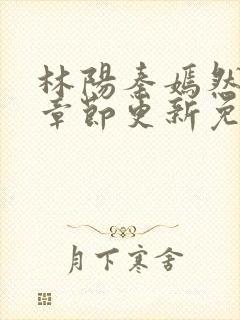 林陽秦嫣然
章節更新免
月下寒舍